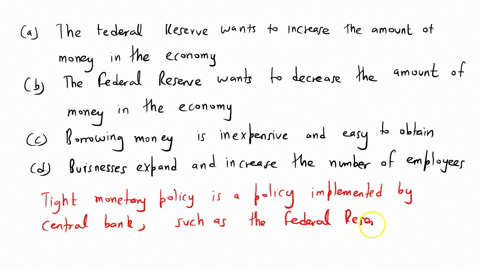 (a) The federal Reserve wants to increase the amount of
money in the economy
(b) The Federal Reserve wants to decrease the amount of
money in the economy
(c) Borrowing money is inexpensive and easy to obtain
(d) Buisnesses expand and increase the number of employees
Tight monetary policy is a policy implemented by
central bank, such as the federal Rese